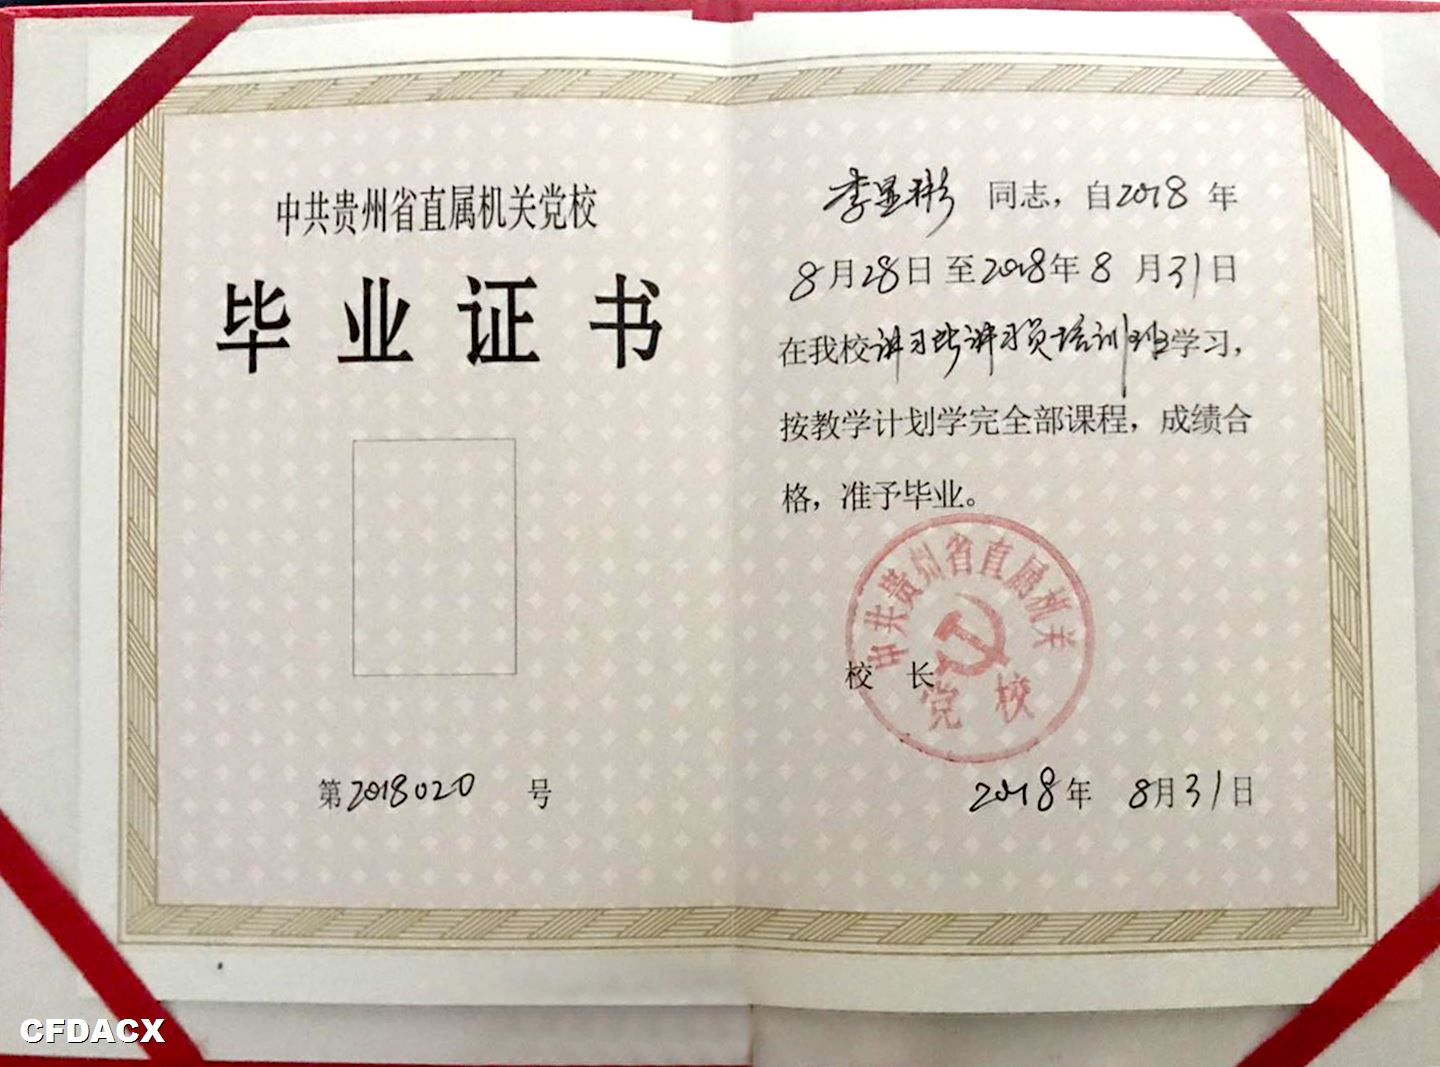 中共贵州省直属机关党校
毕业证书
第2018020 号
李显彬 同志，自2018 年
8月28日至2018年8 月31日
在我校讲习所讲习员培训班学习，
按教学计划学完全部课程，成绩合
格，准予毕业。
中共贵州省直属机关
党 校
校 长
2018年 8月31日
CFDACX